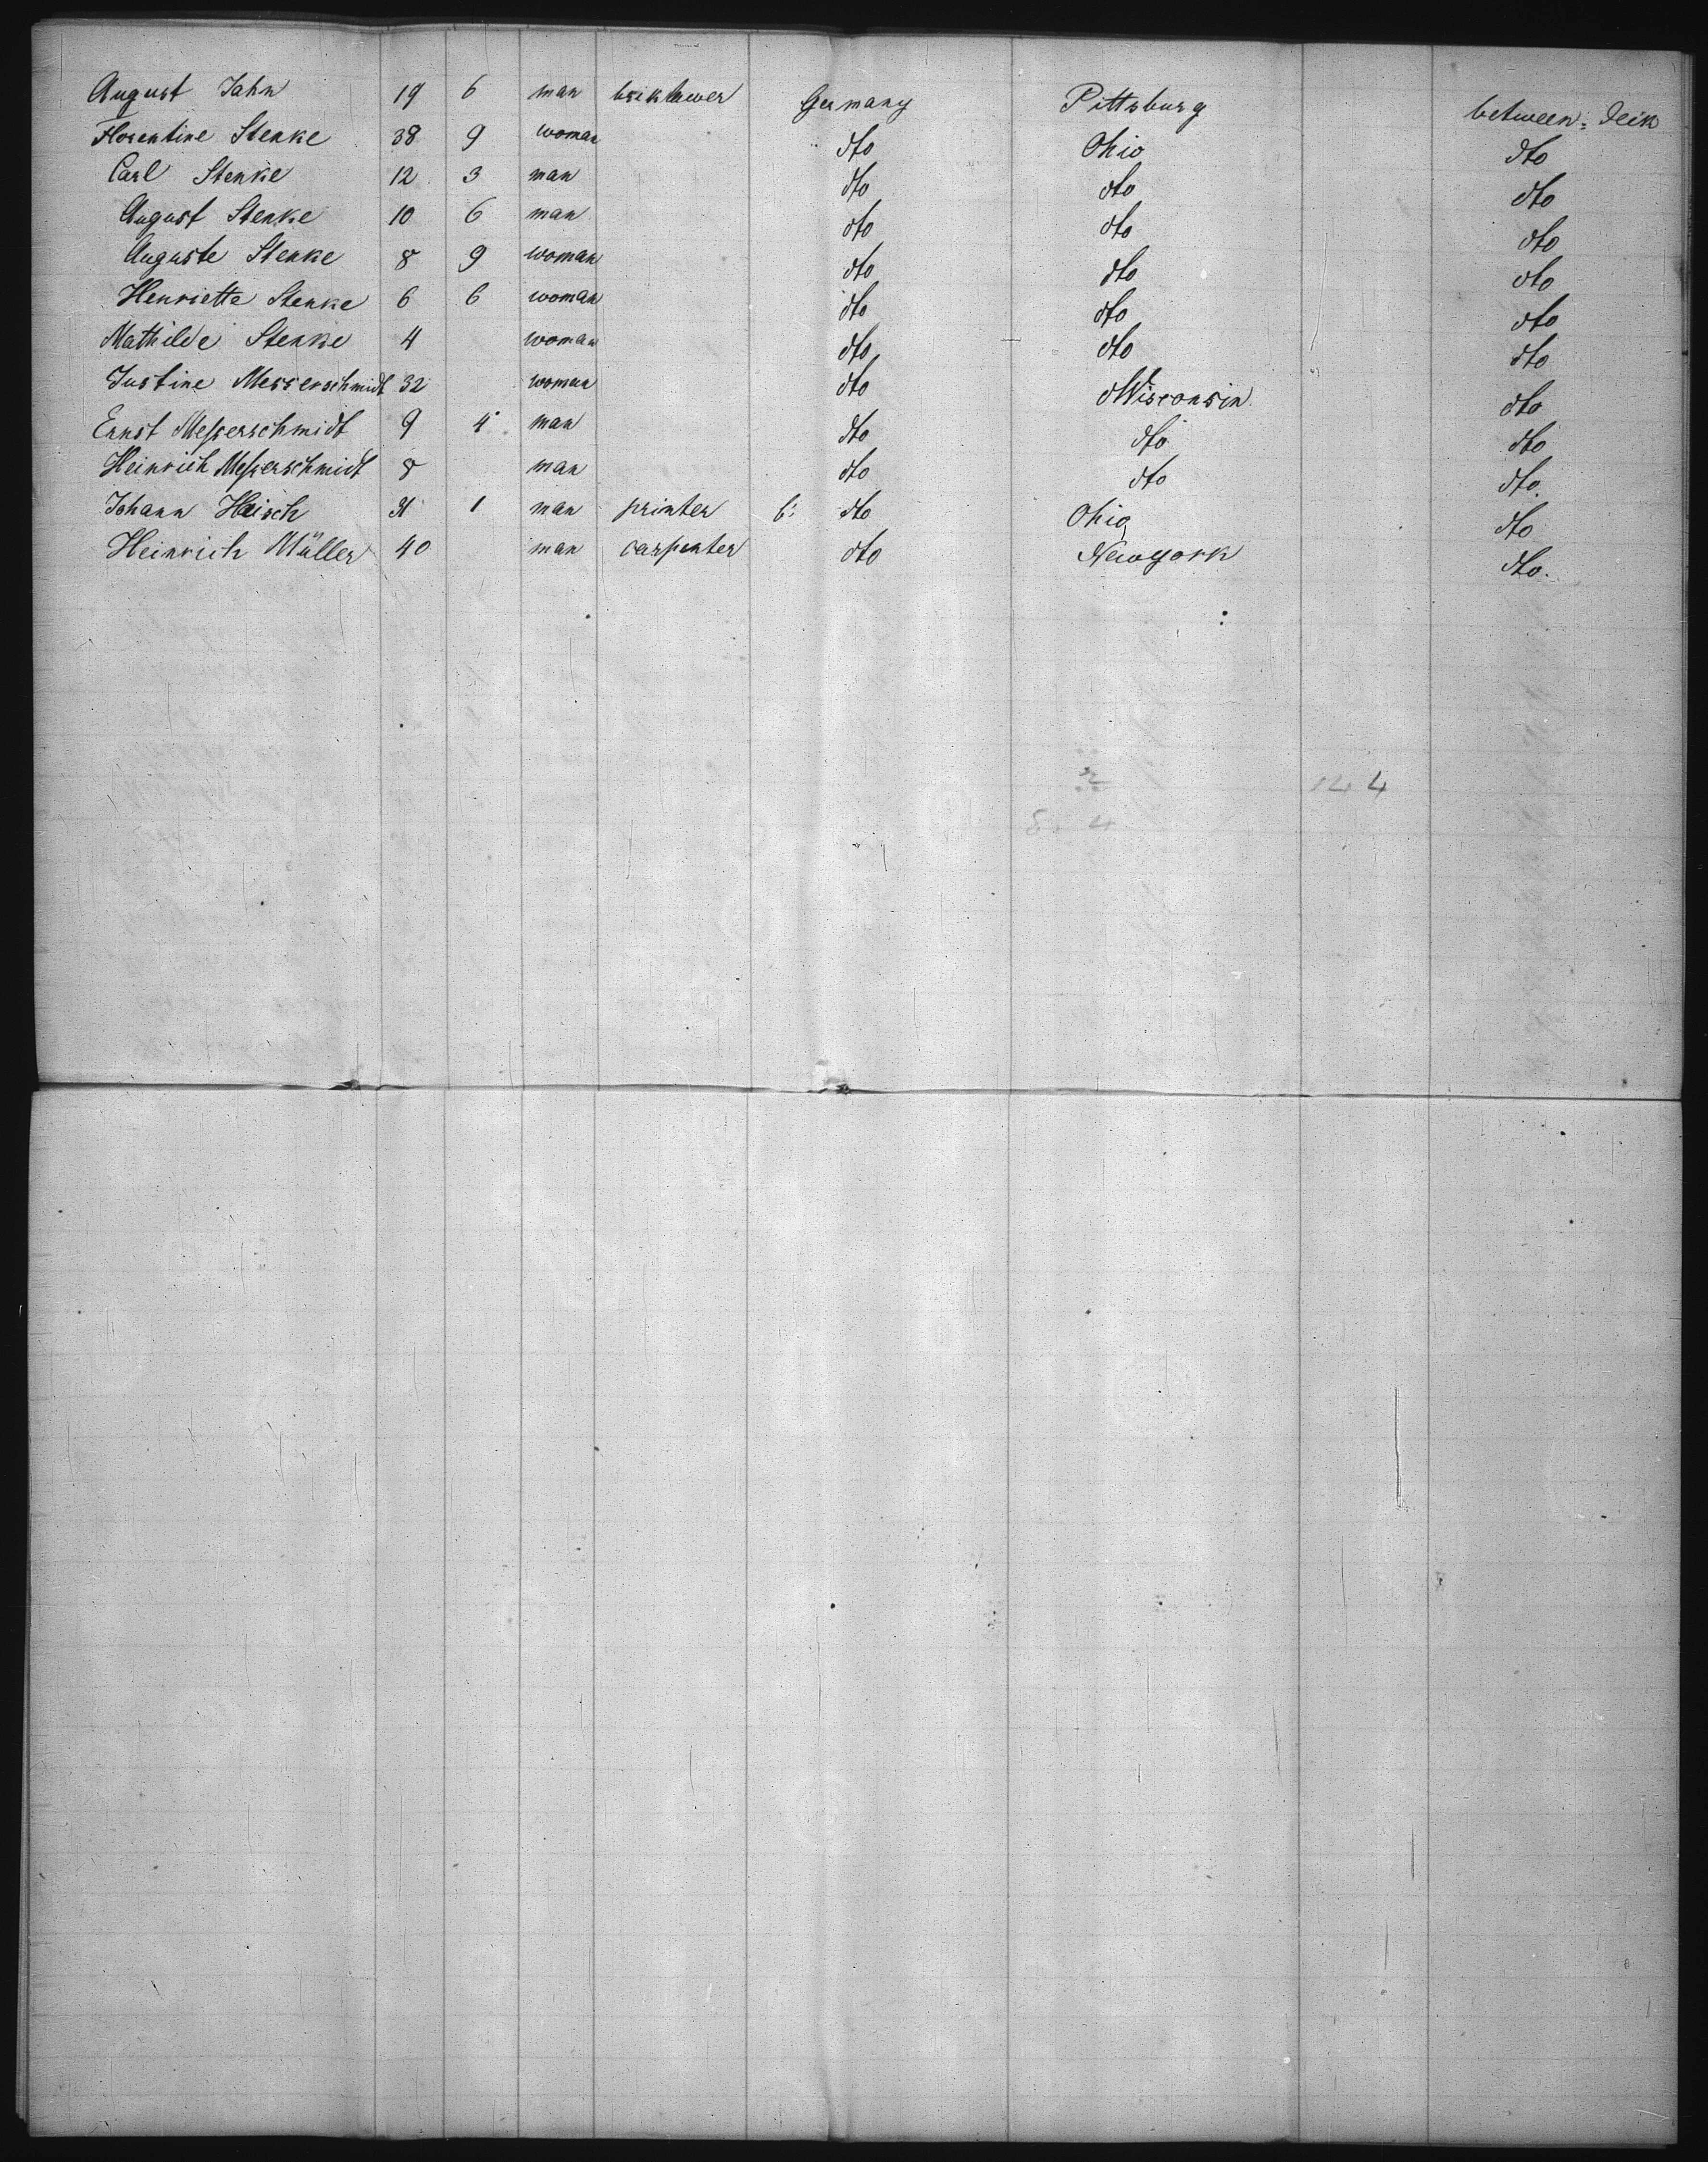 August Jahn 19 6 man briklawer Germany Pittsburg between=deik
Florentine Stenke 38 9 woman dto Ohio dto
Carl Stenke 12 3 man dto dto dto
August Stenke 10 6 man dto dto dto
Auguste Stenke 8 9 woman dto dto dto
Henriette Stenke 6 6 woman dto dto dto
Mathilde Stenke 4 woman dto dto dto
Justine Messerschmidt 32 woman dto Wisconsin dto
Ernst Messerschmidt 9 4 man dto dto dto
Heinrich Messerschmidt 8 man dto dto dto.
Johann Haisch 31 1 man printer dto Ohio dto
Heinrich Müller 40 man carpenter dto Newyork dto.
144